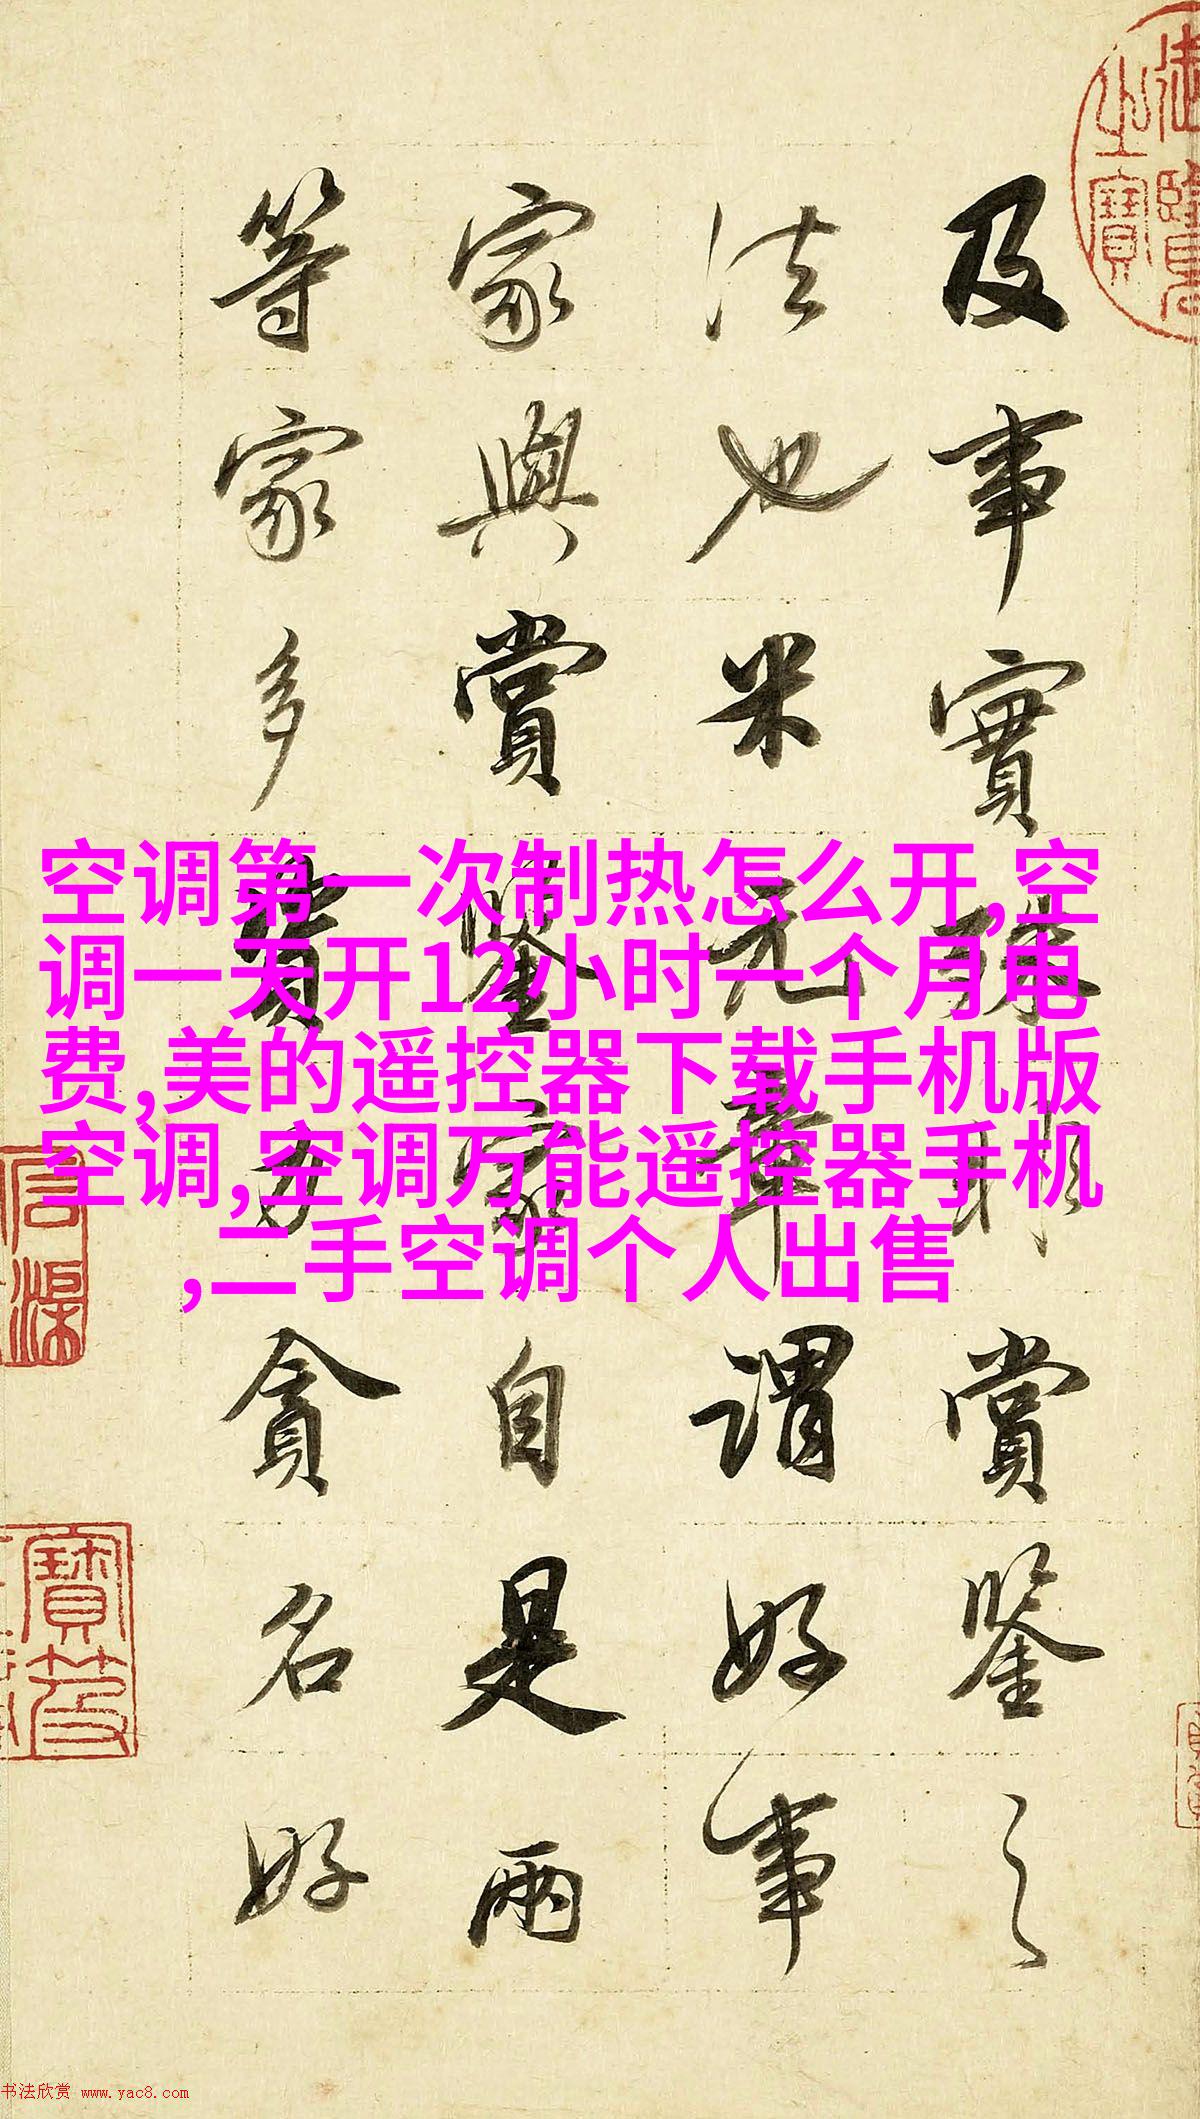 及事實賞鑒之
法也米元章謂好事
家與賞鑒家自是兩
等家多資力貪名好
空调第一次制热怎么开,空
调一天开12小时一个月电
费,美的遥控器下载手机版
空调,空调万能遥控器手机
,二手空调个人出售
书法欣赏 www.yac8.com